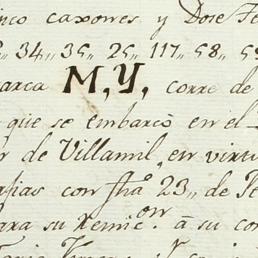 nco caxones y Dose Te
34,, 35,, 25,, 117,, 58,, 5
arca M,Y, corre de
que se embarcò en el
r de Villamil, en virtu
afias con fha 23,, de Fe
ara su Remic.on â su co